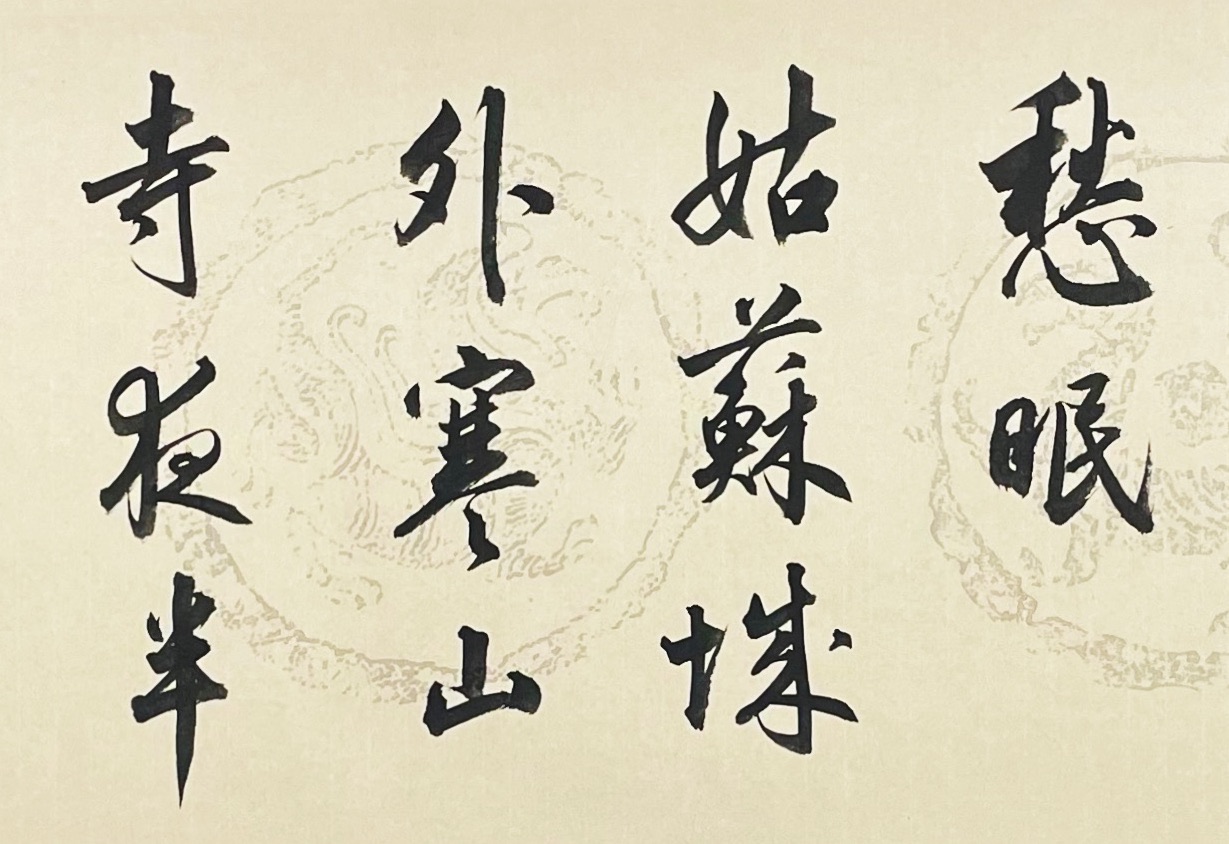 愁眠
姑蘇城
外寒山
寺夜半